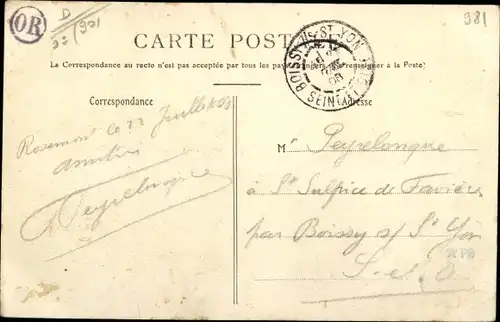 OR
981
CARTE POSTALE
La Correspondance au recto n'est pas acceptée par tous les pays étrangers (Se renseigner à la Poste)
BOISSY-Ss-ST YON
SEINE
Correspondance
Adresse
Rosemont le 22 Juillet 08
amitiés
Peyrelongue
Mr Peyrelongue
à St Sulpice de Favières
par Boissy s/ St Yon
S-et-O